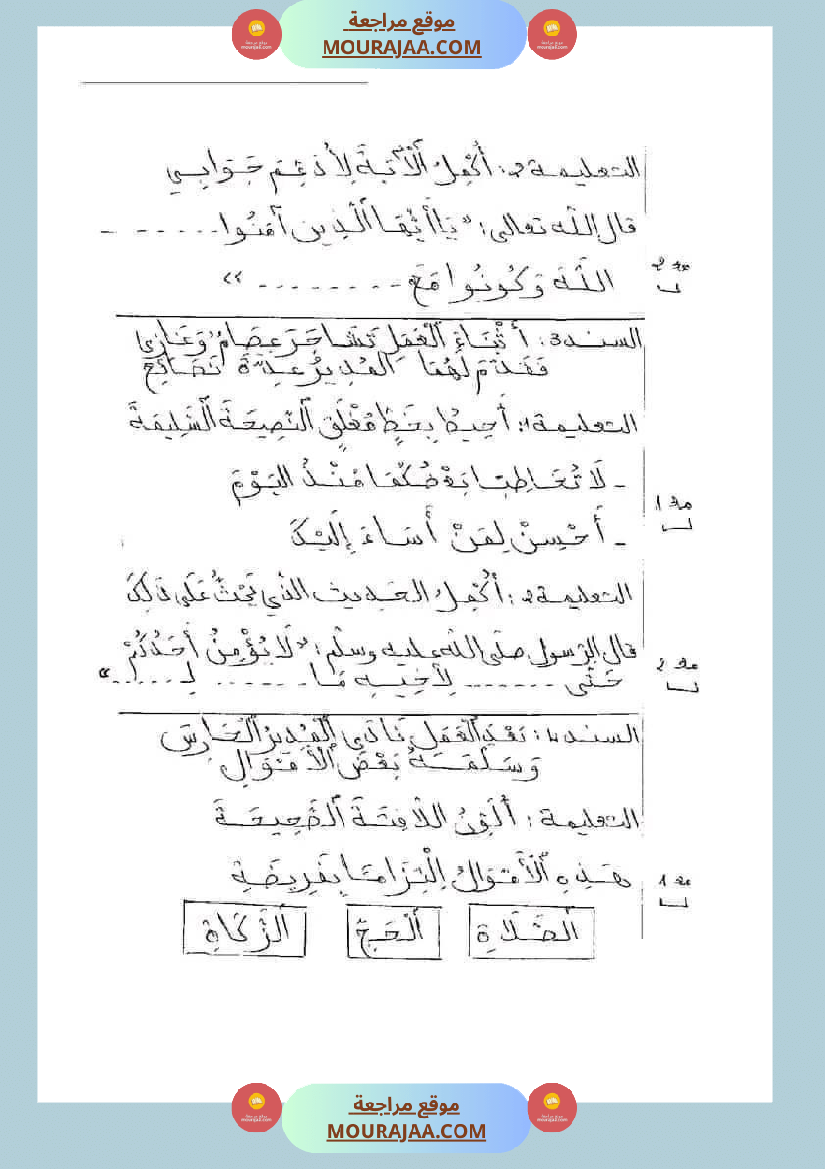 موقع مراجعة
MOURAJAA.COM
التعليمة 2: أُكْمِلُ الْآيَةَ لِأُدَعِّمَ جَوَابِي
قال الله تعالى: "يَا أَيُّهَا الَّذِينَ آمَنُوا . . . . . .
اللَّهَ وَكُونُوا مَعَ . . . . . . . . "
مع 2
السند 3: أَثْنَاءَ الْعَمَلِ تَشَاجَرَ عِصَامُ وَغَازِي
فَقَدَّمَ لَهُمَا الْمُدِيرُ عِدَّةَ نَصَائِحَ
التعليمة 1: أُحِيطُ بِخَطٍّ مُغْلَقٍ النَّصِيحَةَ السَّلِيمَةَ
- لَا تُخَاطِبَا بَعْضُكُمَا مُنْذُ الْيَوْمَ
- أَحْسِنْ لِمَنْ أَسَاءَ إِلَيْكَ
مع 1
التعليمة 2: أُكْمِلُ الحَدِيث الذِي يَحُثُّ عَلَى ذَلِكَ
قال الرسول صلى الله عليه وسلم: "لَا يُؤْمِنُ أَحَدُكُمْ
حَتَّى ........ لِأَخِيهِ مَا ........ لِـ ......"
مع 2
السند 4: بَعْدَ الْعَمَلِ نَادَى الْمُدِيرُ الْحَارِسَ
وَسَلَّمَهُ بَعْضَ الْأَمْوَالِ
التعليمة: أُلَوِّنُ اللَّافِتَةَ الصَّحِيحَةَ
هَذِهِ الْأَمْوَالُ الْتِزَامًا بِفَرِيضَةِ
مع 1
الصَّلَاةِ الْحَجِّ الزَّكَاةِ
موقع مراجعة
MOURAJAA.COM